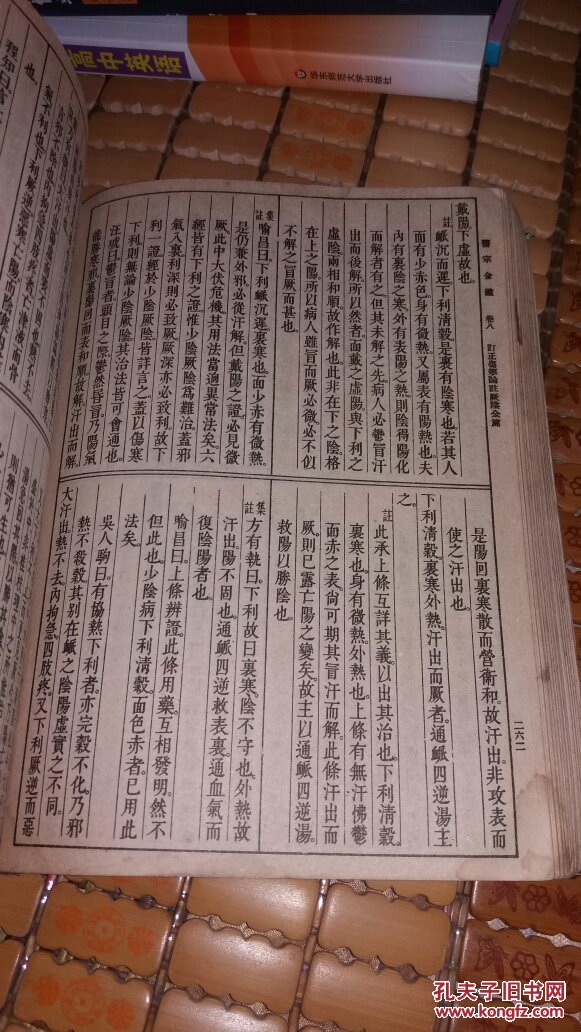 高中英语
华东师范大学出版社
醫宗金鑑 卷八 訂正傷寒論註厥陰全篇
二六二
戴陽下虛故也
註 脈沉而遲下利清穀是裏有陰寒也若其人
面有少赤色身有微熱又屬表有陽熱也夫
內有裏陰之寒外有表陽之熱則陰得陽化
而解者有之但其未解之先病人必鬱冒汗
出而後解所以然者面戴之虛陽與下利之
虛陰兩相和順故作解也此非在下之陰格
在上之陽所以病人雖冒而厥必微必不似
不解之冒厥而甚也
集註 喻昌曰下利脈沉遲裏寒也面少赤有微熱
是仍兼外邪必從汗解但戴陽之證必見微
厥此中大伏危機其用法當適異常法矣六
經皆有下利之證惟少陰厥陰爲難治蓋邪
氣入裏利深則必致厥厥深亦必致利故下
利一證經於少陰厥陰皆詳言之蓋以傷寒
下利則無論少陰厥陰其治法皆可會通也
汪琥曰鬱冒者頭目之際鬱然昏冒乃陽氣
能勝寒邪裏陽回而表和順故解汗出而解
是陽回裏寒散而營衛和故汗出非攻表而
使之汗出也
下利清穀裏寒外熱汗出而厥者通脈四逆湯主
之
註 此承上條互詳其義以出其治也下利清穀
裏寒也身有微熱外熱也上條有無汗怫鬱
面赤之表尙可期其冒汗而解此條汗出而
厥則已露亡陽之變矣故主以通脈四逆湯
救陽以勝陰也
集註 方有執曰下利故曰裏寒陰不守也外熱故
汗出陽不固也通脈四逆救表裏通血氣而
復陰陽者也
喻昌曰上條辨證此條用藥互相發明然不
但此也少陰病下利清穀面色赤者已用此
法矣
吳人駒曰有協熱下利者亦完穀不化乃邪
熱不殺穀其别在脈之陰陽虛實之不同
大汗出熱不去內拘急四肢疼又下利厥逆而惡
孔夫子旧书网
www.kongfz.com